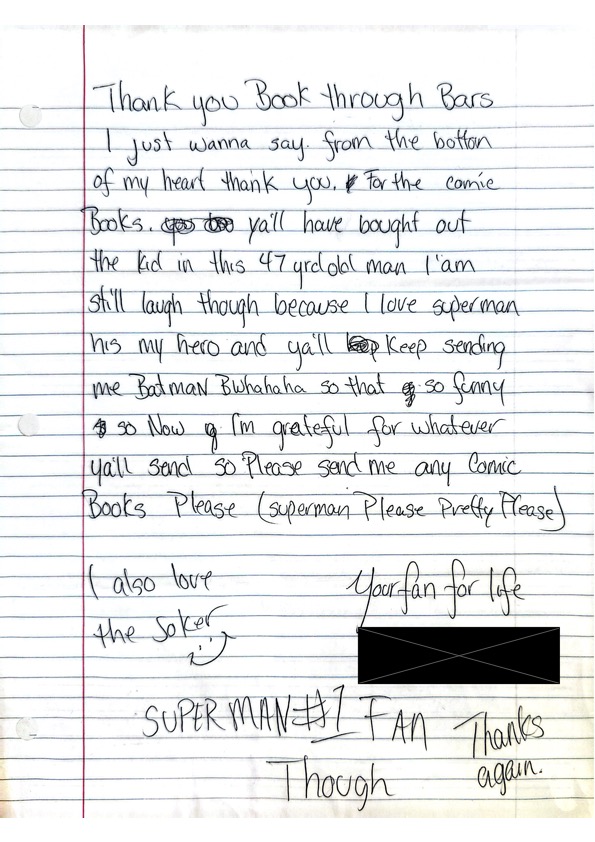 Thank you Book through Bars
I just wanna say. from the botton
of my heart thank you. For the comic
Books. ya'll have bought out
the kid in this 47 yrd old man I'am
still laugh though because I love superman
his my hero and ya'll Keep sending
me Batman Bwhahaha so that so funny
so Now I'm grateful for whatever
ya'll send so Please send me any Comic
Books Please (superman Please Pretty Please)
I also love
the Joker
Your fan for life
SUPERMAN #1 FAN
Though
Thanks
again.